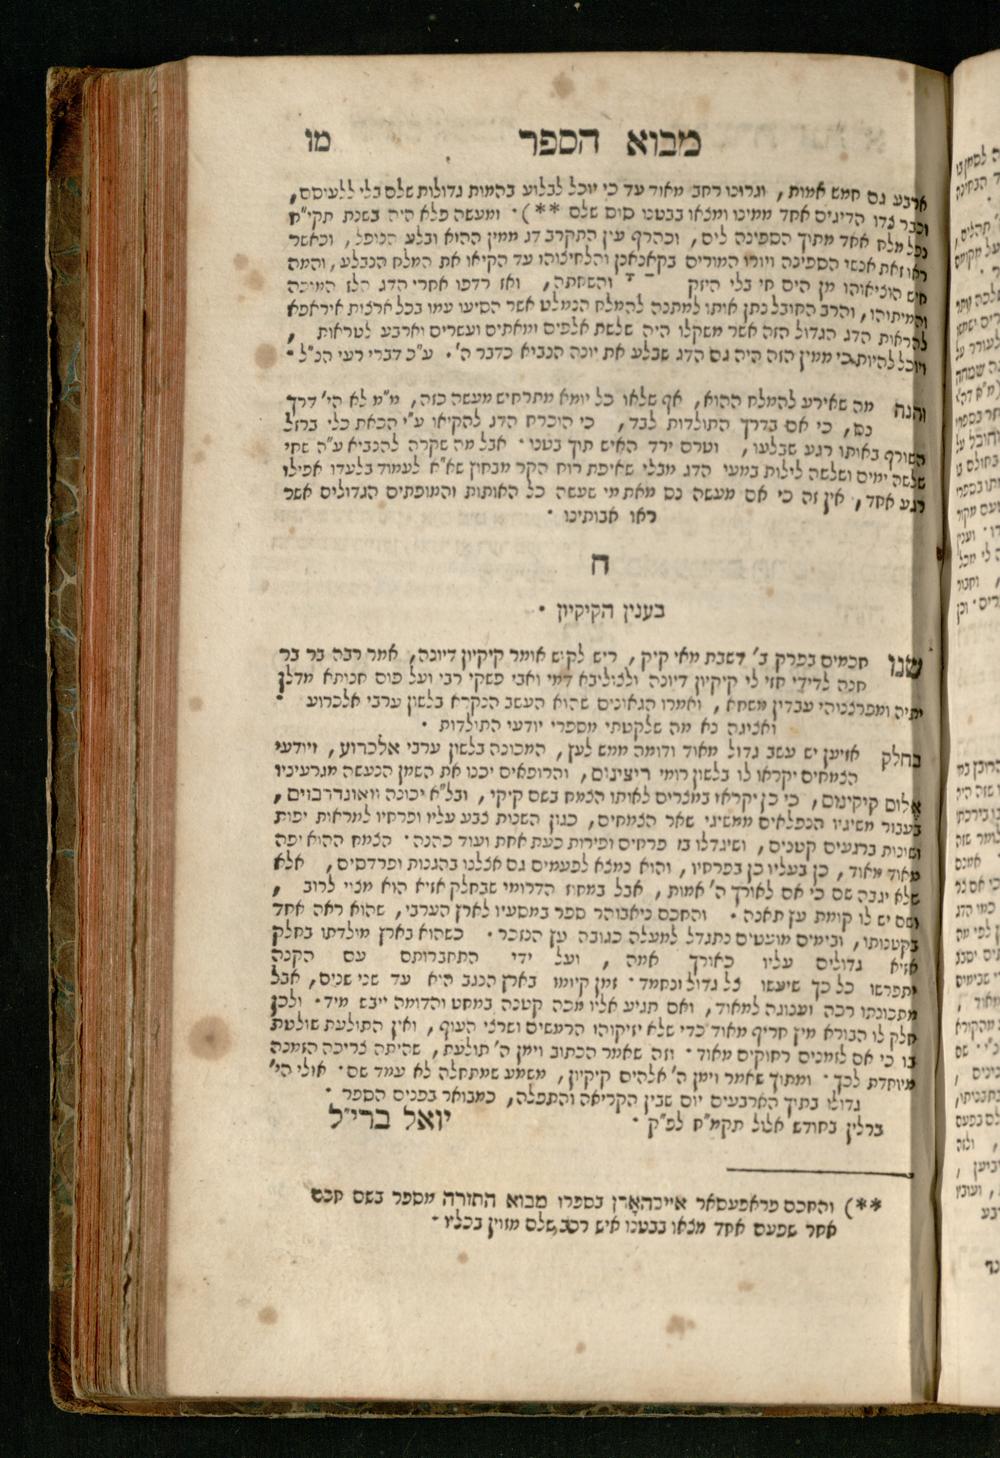 מבוא הספר מו
ארבע גם חמש אמות, וגרונו רחב מאוד עד כי יוכל לבלוע בהמות גדולות שלם בלי ללעיסם,
וכבר צדו הדייגים אחד ממינו ומצאו בבטנו סוס שלם **)· ומעשה פלא היה בשנת תקי״ח
נפל מלח אחד מתוך הספינה לים, וכהרף עין התקרב דג ממין ההוא ובלע הנופל, וכאשר
ראו זאת אנשי הספינה ויורו המורים בקאנאנן והלחיצוהו עד הקיאו את המלח הנבלע, והמה
חיש הוציאוהו מן הים חי בלי היזק והשחתה, ואז רדפו אחרי הדג הלז המוכה
והמיתוהו, והרב החובל נתן אותו למתנה להמלח הנמלט אשר הסיעו עמו בכל ארצות איראפא
להראות הדג הגדול הזה אשר משקלו היה שלשת אלפים ומאתים ועשרים וארבע לטראות,
ויוכל להיות כי ממין הזה היה גם הדג שבלע את יונה הנביא כדבר ה׳· ע״כ דברי רעי הנ״ל·
והנה מה שאירע להמלח ההוא, אף שלאו כל יומא מתרחיש מעשה כזה, מ״מ לא הי׳ דרך
נס, כי אם בדרך התולדות לבד, כי הוכרח הדג להקיאו ע״י הכאת כלי ברזל
השורף באותו רגע שבלעו, וטרם ירד האיש תוך בטנו· אבל מה שקרה להנביא ע״ה שחי
שלשה ימים ושלשה לילות במעי הדג מבלי שאיפת רוח הקר מבחוץ שא״א לעמוד בלעדו אפילו
רגע אחד, אין זה כי אם מעשה נס מאת מי שעשה כל האותות והמופתים הגדולים אשר
ראו אבותינו·
ה
בענין הקיקיון·
שנו חכמים בפרק ב׳ דשבת מאי קיק, ריש לקיש אומר קיקיון דיונה, אמר רבה בר בר
חנה לדידי חזי לי קיקיון דיונה ולצוליבא דמי ואבי פשקי רבי ועל פום חנותא מדלן
יתיה ומפרצנוהי עבדין משחא, ואמרו הגאונים שהוא העשב הנקרא בלשון ערבי אלכרוע·
ואציגה נא מה שלקטתי מספרי יודעי התולדות·
בחלק אזיען יש עשב גדול מאוד ודומה ממש לעץ, המכונה בלשון ערבי אלכרוע, ויודעי
הצמחים יקראו לו בלשון רומי ריצינוס, והרופאים יכנו את השמן הנעשה מגרעיניו
אָלום קיקינום, כי כן יקראו במצרים לאותו הצמח בשם קיקי, ובל״א יכונה וואונדרבוים,
בעבור משיגיו הנפלאים ממשיגי שאר הצמחים, כגון השנות צבע עליו ופרחיו למראות יפות
ושונות ברגעים קטנים, ושיגדלו בו פרחים ופירות כעת אחת ועוד כהנה· הצמח ההוא יפה
מאוד מאוד, כן בעליו כן בפרחיו, והוא נמצא לפעמים גם אצלנו בהגנות ופרדסים, אלא
שלא יגבה שם כי אם לאורך ה׳ אמות, אבל במחוז הדרומי שבחלק אזיא הוא מצוי לרוב,
ושם יש לו קומת עץ תאנה· והחכם ניאבוהר ספר במסעיו לארץ הערבי, שהוא ראה אחד
בקטנותו, ובימים מועטים נתגדל למעלה כגובה עץ הנזכר· כשהוא בארץ מולדתו בחלק
אזיא גדולים עליו כאורך אמה, ועל ידי התחברותם עם הקנה
יתפרשו כל כך שיעשו צל גדול ונחמד· זמן קיומו בארץ הנגב היא עד שני שנים, אבל
מתכונתו רכה וענוגה למאוד, ואם תגיע אליו מכה קטנה במחט והדומה ייבש מיד· ולכן
חלק לו הבורא מיץ חריף מאוד כדי שלא יזיקוהו הרמשים ושרצי העוף, ואין התולעת שולטת
בו כי אם לזמנים רחוקים מאוד· וזה שאמר הכתוב וימן ה׳ תולעת, שהיתה צריכה הזמנה
מיוחדת לכך· ומתוך שאמר וימן ה׳ אלהים קיקיון, משמע שמתחלה לא עמד שם· אולי הי׳
גדולו בתוך הארבעים יום שבין הקריאה והתפלה, כמבואר בפנים הספר·
ברלין בחודש אלול תקמ״ח לפ״ק· יואל ברי״ל
**) והחכם פראפעסאר אייכהאָרן בספרו מבוא התורה מספר בשם חכם
אחר שפעם אחד מצאו בבטנו איש רכב שלם מזוין בכליו·